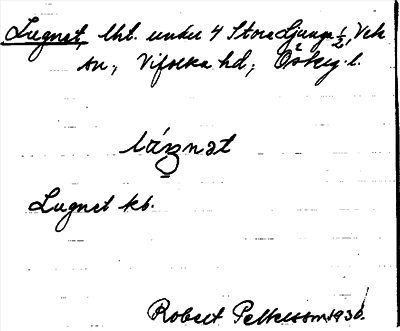 Lugnet, lht. under 4 Stora Ljunga 1/2, Veh
sn., Vifolka hd; Östg. l.
Lugnet kb.
Robert Pettersson 1930.